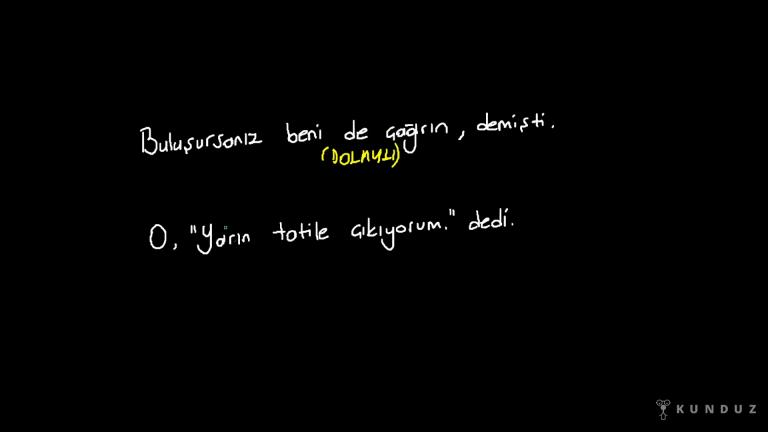 Buluşursanız beni de çağırın, demişti.
(DOLAYLI)
O, "Yarın tatile çıkıyorum." dedi.
KUNDUZ